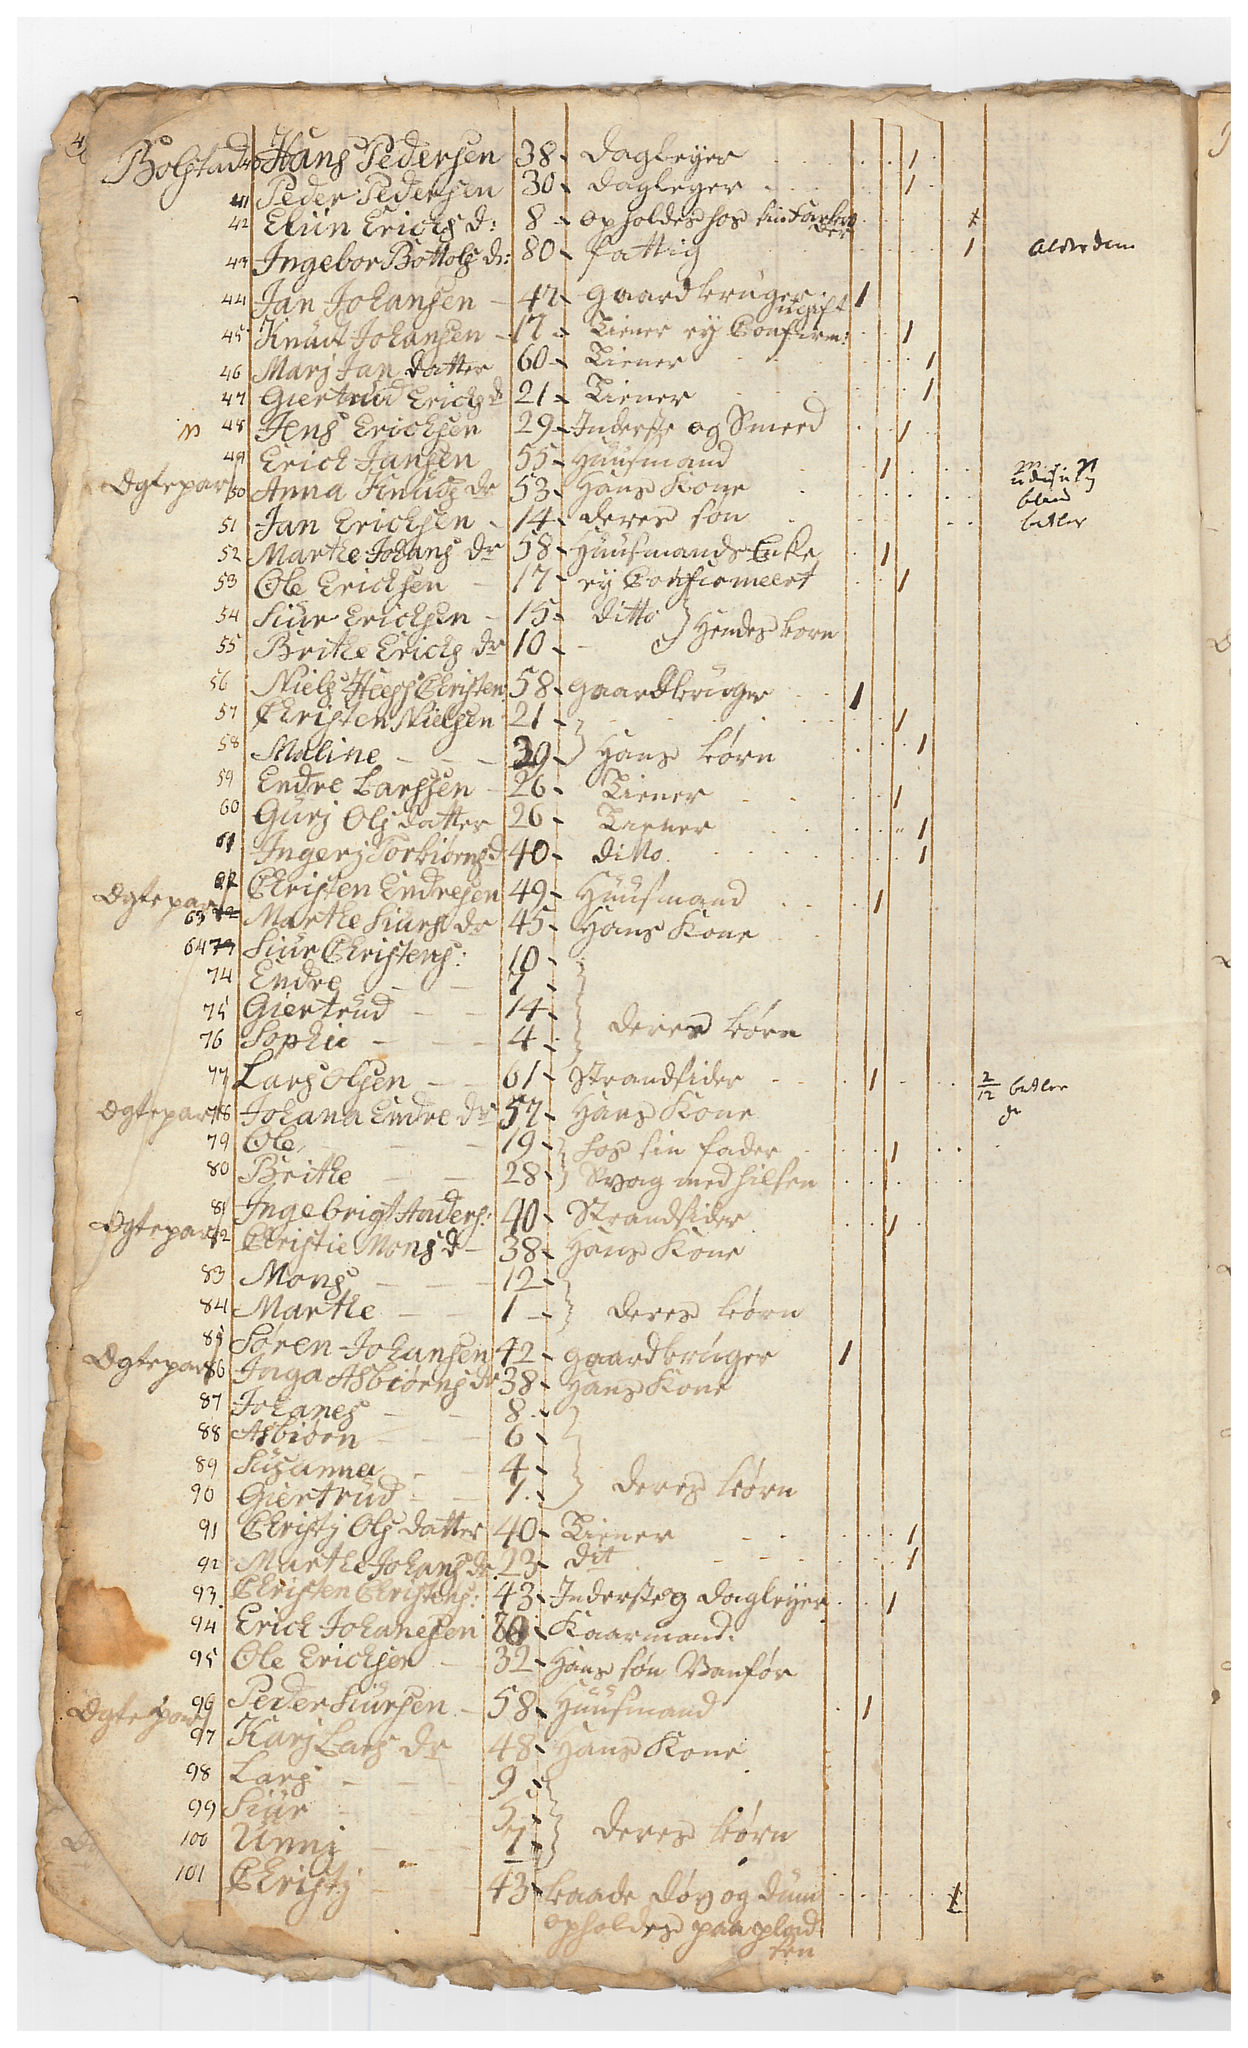 Bolstad 40 Hans Pedersen 38 - dagleyer
41 Peder Pedersen 30 - dagleyer
42 Eliin Erichs d: 8 - opholdes hos sin
43 Ingebor Bottolfs dr: 80 - fattig 1 alderdom
44 Jan Johansen - 47 - gaardbruger 1
ugift
45 Knud Johansen - 17 - Tiener ey Confirm: 1
46 Marj Jan datter 60 - Tiener 1
47 Giertrud Erichs d 21 - Tiener 1
48 Jens Erichsen 29 - Inderste og Smeed 1
49 Erich Jansen 55 - Huusmand 1
Ægtepar 50 Anna Knuds dr 53 - Hans Kone
51 Jan Erichsen - 14 - deres søn
52 Marthe Johans dr 58 - Huusmands Enke 1
53 Ole Erichsen - 17 - ey Confirmeert 1
54 Siur Erichsen - 15 - ditto } Hendes børn
55 Brithe Erichs dr 10 -
56 Niels Christen 58 - gaardbruger 1
57 Christen Nielsen 21 - 1
58 Maline - - - 39 - } Hans børn 1
59 Endre Larssen - 26 - Tiener 1
60 Gurj Ols datter 26 - Tiener 1
61 Ingerj Torbiørns d 40 - ditto 1
62 Christen Endresen 49 - Huusmand 1
Ægtepar 63 Marthe Siurs dr 45 - Hans Kone
64 Siur Christens: 10 -
74 Endre - - 7 -
75 Giertrud - - 14 - } deres børn
76 Sophie - - - 4 -
77 Lars Olsen - - 61 - Strandsider 1 2/12
Ægtepar 78 Johana Endre dr 57 - Hans Kone
79 Ole - - - 19 - hos sin fader 1
80 Brithe - - 28 - Svag med hilsen
81 Ingebrigt Anders: 40 - Strandsider 1
Ægtepar 82 Christie Mons d - 38 - Hans Kone
83 Mons - - - 12 -
84 Marthe - - 1 - } deres børn
85 Søren Johansen 42 - gaardbruger 1
Ægtepar 86 Inga Asbiørns dr 38 - Hans Kone
87 Johanes - - 8 -
88 Asbiørn - - 6 -
89 Susanna - - 4 -
90 Giertrud - - 1 - } deres børn
91 Christj Ols datter 40 - Tiener 1
92 Marthe Johans dr 23 - dit 1
93 Christen Christens: 43 - Inderste og dagleyer 1
94 Erich Johanesen 70 - Kaarmand.
95 Ole Erichsen - 32 - Hans søn Vanfør
96 Peder Siursen - 58 - Huusmand 1
Ægtepar 97 Karj Lars dr 48 - Hans Kone
98 Lars - - - 9 -
99 Siur - - 5 -
100 Unnj - - 1 - } deres børn
101 Christj - - 43 - baade døv og dum
opholdes paa plad
sen